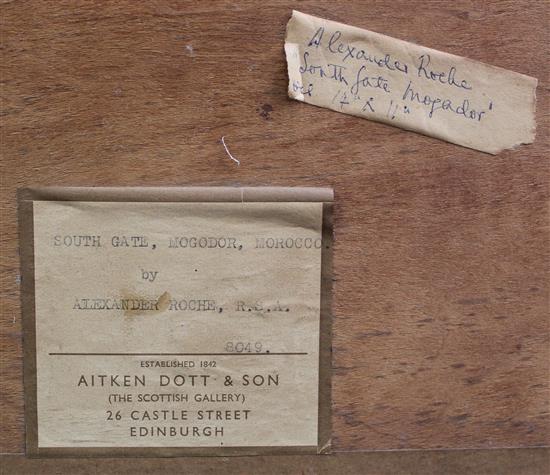 Alexander Roche
'South Gate Mogador'
oil 17" x 11"
SOUTH GATE, MOGODOR, MOROCCO.
by
ALEXANDER ROCHE, R.S.A.
8049.
ESTABLISHED 1842
AITKEN DOTT & SON
(THE SCOTTISH GALLERY)
26 CASTLE STREET
EDINBURGH